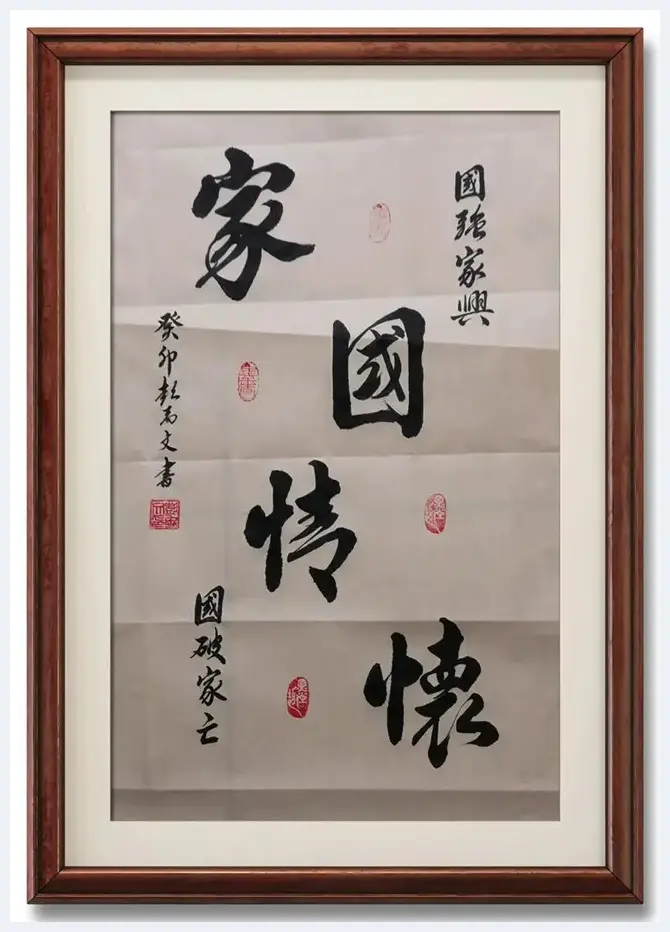 國強家興
家國情懷
國破家亡
癸卯彭文書